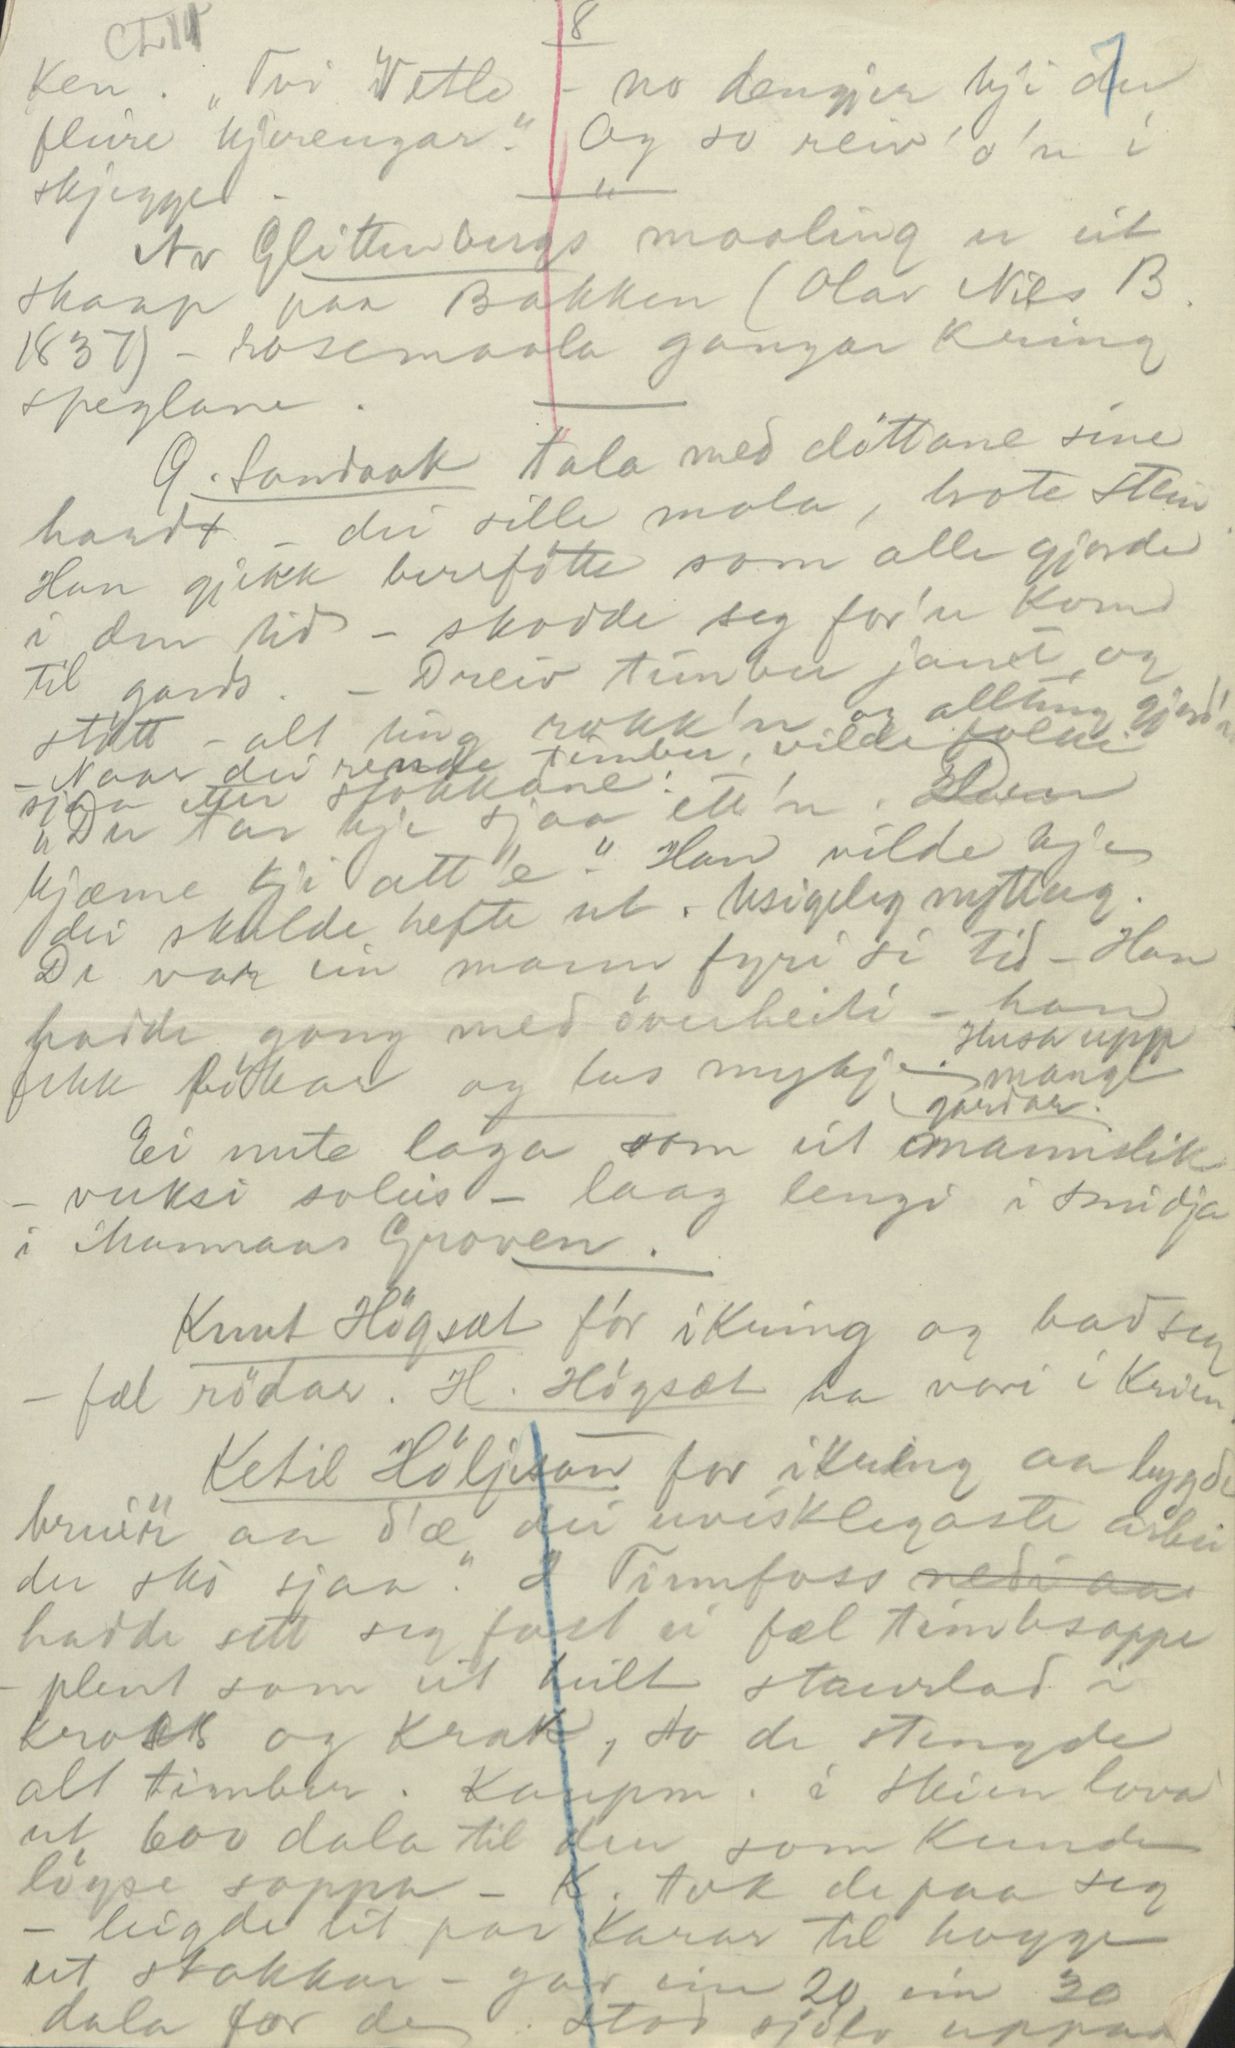 8
7
ken. "Tvi Vetle - no dengjer kji du
fleire kjerengar." Og so reiv'o'n i
skjegge -
Av Glittenbergs maaling er eit
skaap paa Bakken (Olav Nils B.
1837) - rosemaala gangar kring
speglane.
G. Sandaak tala med döttane sine
hardt - dei sille mala, brote stein.
Han gjekk bereføtte som alle gjorde
i den tid - skodde seg for'n kom
til gards. - Dreiv timber jamt og
stött - alt ting rokk'n og allting gjord'n
- Naar dei rende timber, vilde folki
sjaa etter stokkane:
"Du tar kje sjaa ett'n.
kjæme kji att'e" Han vilde kje
dei skulde hefte ut. Usigeleg nyttug.
De var ein mann fyri si tid - Han
hadde gang med överheiti - han
fekk bökar og las mykje. Husa upp
mange
gardar.
Ei nute laga som eit mannslik
- vuksi soleis - laag lengi i smidja
i Groven.
Knut Högsæt fór ikring og bad seg
- fæl rödar. H. Högsæt aa vori i Krien.
Ketil Höljeson for ikring aa bygde
bruer aa d'æ dei uvisklegaste arbei
der sko sjaa." I Tinnfoss nedi aa
hadde sett seg fast ei fæl timbsoppe
- plent som eit heilt staurlad i
krokk og krak, so de stengde
alt timber. Kaupm. i Skien lova
ut 600 dala til den som kunde
löyse soppa - K. tok de paa seg
- leigde eit par karar til hogge
ut stokkar - gav ein 20 ein 30
dala for de. Stod sjölv uppaa